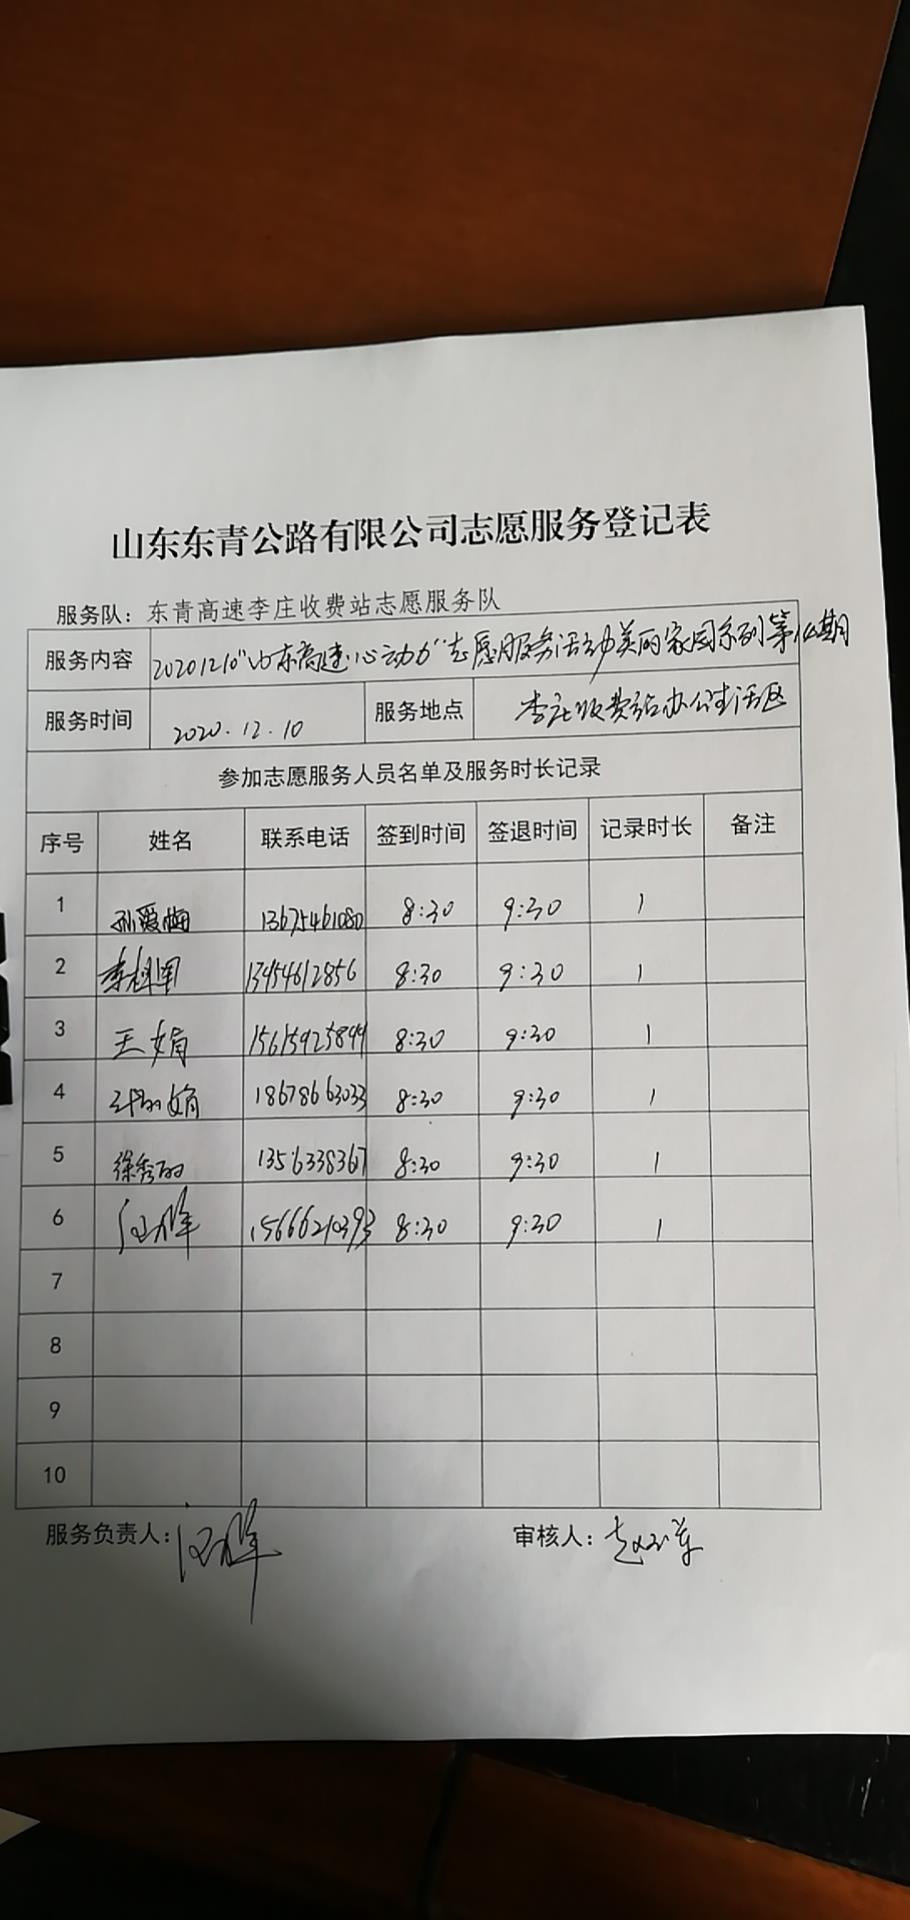 山东东青公路有限公司志愿服务登记表
服务队：东青高速李庄收费站志愿服务队
服务内容 20201210"山东高速·心动力"志愿服务活动美丽家园系列第 期
服务时间 2020.12.10 服务地点 李庄收费站办公生活区
参加志愿服务人员名单及服务时长记录
序号 姓名 联系电话 签到时间 签退时间 记录时长 备注
1 孙爱梅 13675461080 8:30 9:30 1
2 李 13454612856 8:30 9:30 1
3 王娟 15615925899 8:30 9:30 1
4 娟 18678663033 8:30 9:30 1
5 徐秀丽 1356338367 8:30 9:30 1
6 15666210393 8:30 9:30 1
7
8
9
10
服务负责人： 审核人：赵